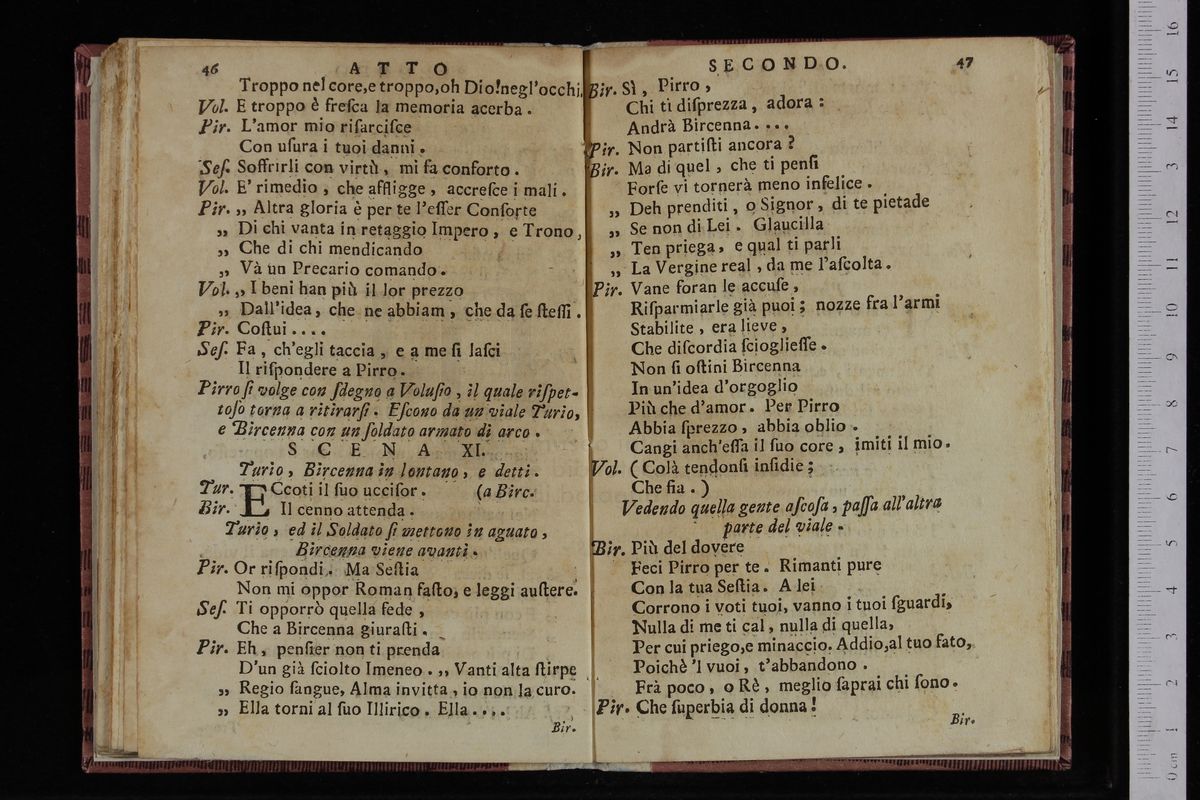 46 ATTO
Troppo nel core,e troppo,oh Dio!negl'occhi.
Vol. E troppo è freſca la memoria acerba .
Pir. L'amor mio riſarciſce
Con uſura i tuoi danni .
Seſ. Soffrirli con virtù , mi fa conforto .
Vol. E' rimedio , che affligge , accreſce i mali .
Pir. ,, Altra gloria è per te l'eſſer Conſorte
,, Di chi vanta in retaggio Impero , e Trono,
,, Che di chi mendicando
,, Và un Precario comando .
Vol. ,, I beni han più il lor prezzo
,, Dall'idea, che ne abbiam , che da ſe ſteſſi .
Pir. Coſtui ....
Seſ. Fa , ch'egli taccia , e a me ſi laſci
Il riſpondere a Pirro .
Pirro ſi volge con ſdegno a Voluſio , il quale riſpet-
toſo torna a ritirarſi . Eſcono da un viale Turio,
e Bircenna con un ſoldato armato di arco .
SCENA XI.
Turio , Bircenna in lontano , e detti .
Tur. ECcoti il ſuo ucciſor . (a Birc.
Bir. Il cenno attenda .
Turio , ed il Soldato ſi mettono in aguato ,
Bircenna viene avanti .
Pir. Or riſpondi . Ma Seſtia
Non mi oppor Roman faſto, e leggi auſtere.
Seſ. Ti opporrò quella fede ,
Che a Bircenna giuraſti .
Pir. Eh , penſier non ti prenda
D'un già ſciolto Imeneo . ,, Vanti alta ſtirpe
,, Regio ſangue, Alma invitta , io non la curo.
,, Ella torni al ſuo Illirico . Ella ....
Bir.
SECONDO. 47
Bir. Sì , Pirro ,
Chi ti diſprezza , adora :
Andrà Bircenna ....
Pir. Non partiſti ancora ?
Bir. Ma di quel , che ti penſi
Forſe vi tornerà meno infelice .
,, Deh prenditi , o Signor , di te pietade
,, Se non di Lei . Glaucilla
,, Ten priega , e qual ti parli
,, La Vergine real , da me l'aſcolta .
Pir. Vane foran le accuſe ,
Riſparmiarle già puoi ; nozze fra l'armi
Stabilite , era lieve ,
Che diſcordia ſcioglieſſe .
Non ſi oſtini Bircenna
In un'idea d'orgoglio
Più che d'amor . Per Pirro
Abbia ſprezzo , abbia oblio .
Cangi anch'eſſa il ſuo core , imiti il mio .
Vol. ( Colà tendonſi inſidie ;
Che ſia . )
Vedendo quella gente aſcoſa , paſſa all'altra
parte del viale .
Bir. Più del dovere
Feci Pirro per te . Rimanti pure
Con la tua Seſtia . A lei
Corrono i voti tuoi, vanno i tuoi ſguardi,
Nulla di me ti cal , nulla di quella,
Per cui priego,e minaccio. Addio,al tuo fato,
Poichè 'l vuoi , t'abbandono .
Frà poco , o Rè , meglio ſaprai chi ſono .
Pir. Che ſuperbia di donna !
Bir.
0 cm 1 2 3 4 5 6 7 8 9 10 11 12 13 14 15 16